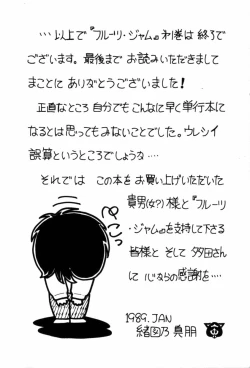 …以上で『フルーツ・ジャム』の巻は終りで
ございます。最後まで お読みいただきまして
まことに ありがとうございました!
正直なところ 自分でも こんなに早く単行本に
なるとは思ってもみないことでした。ウレシイ
誤算というところでしょうな…
それでは この本をお買い上げいただいた
貴男(女?)様と『フルーツ
・ジャム』を支持して下さる
皆様と そして 多田さん
に 心からの感謝を…
ぺこっ
1989.JAN
緒図乃 真朋